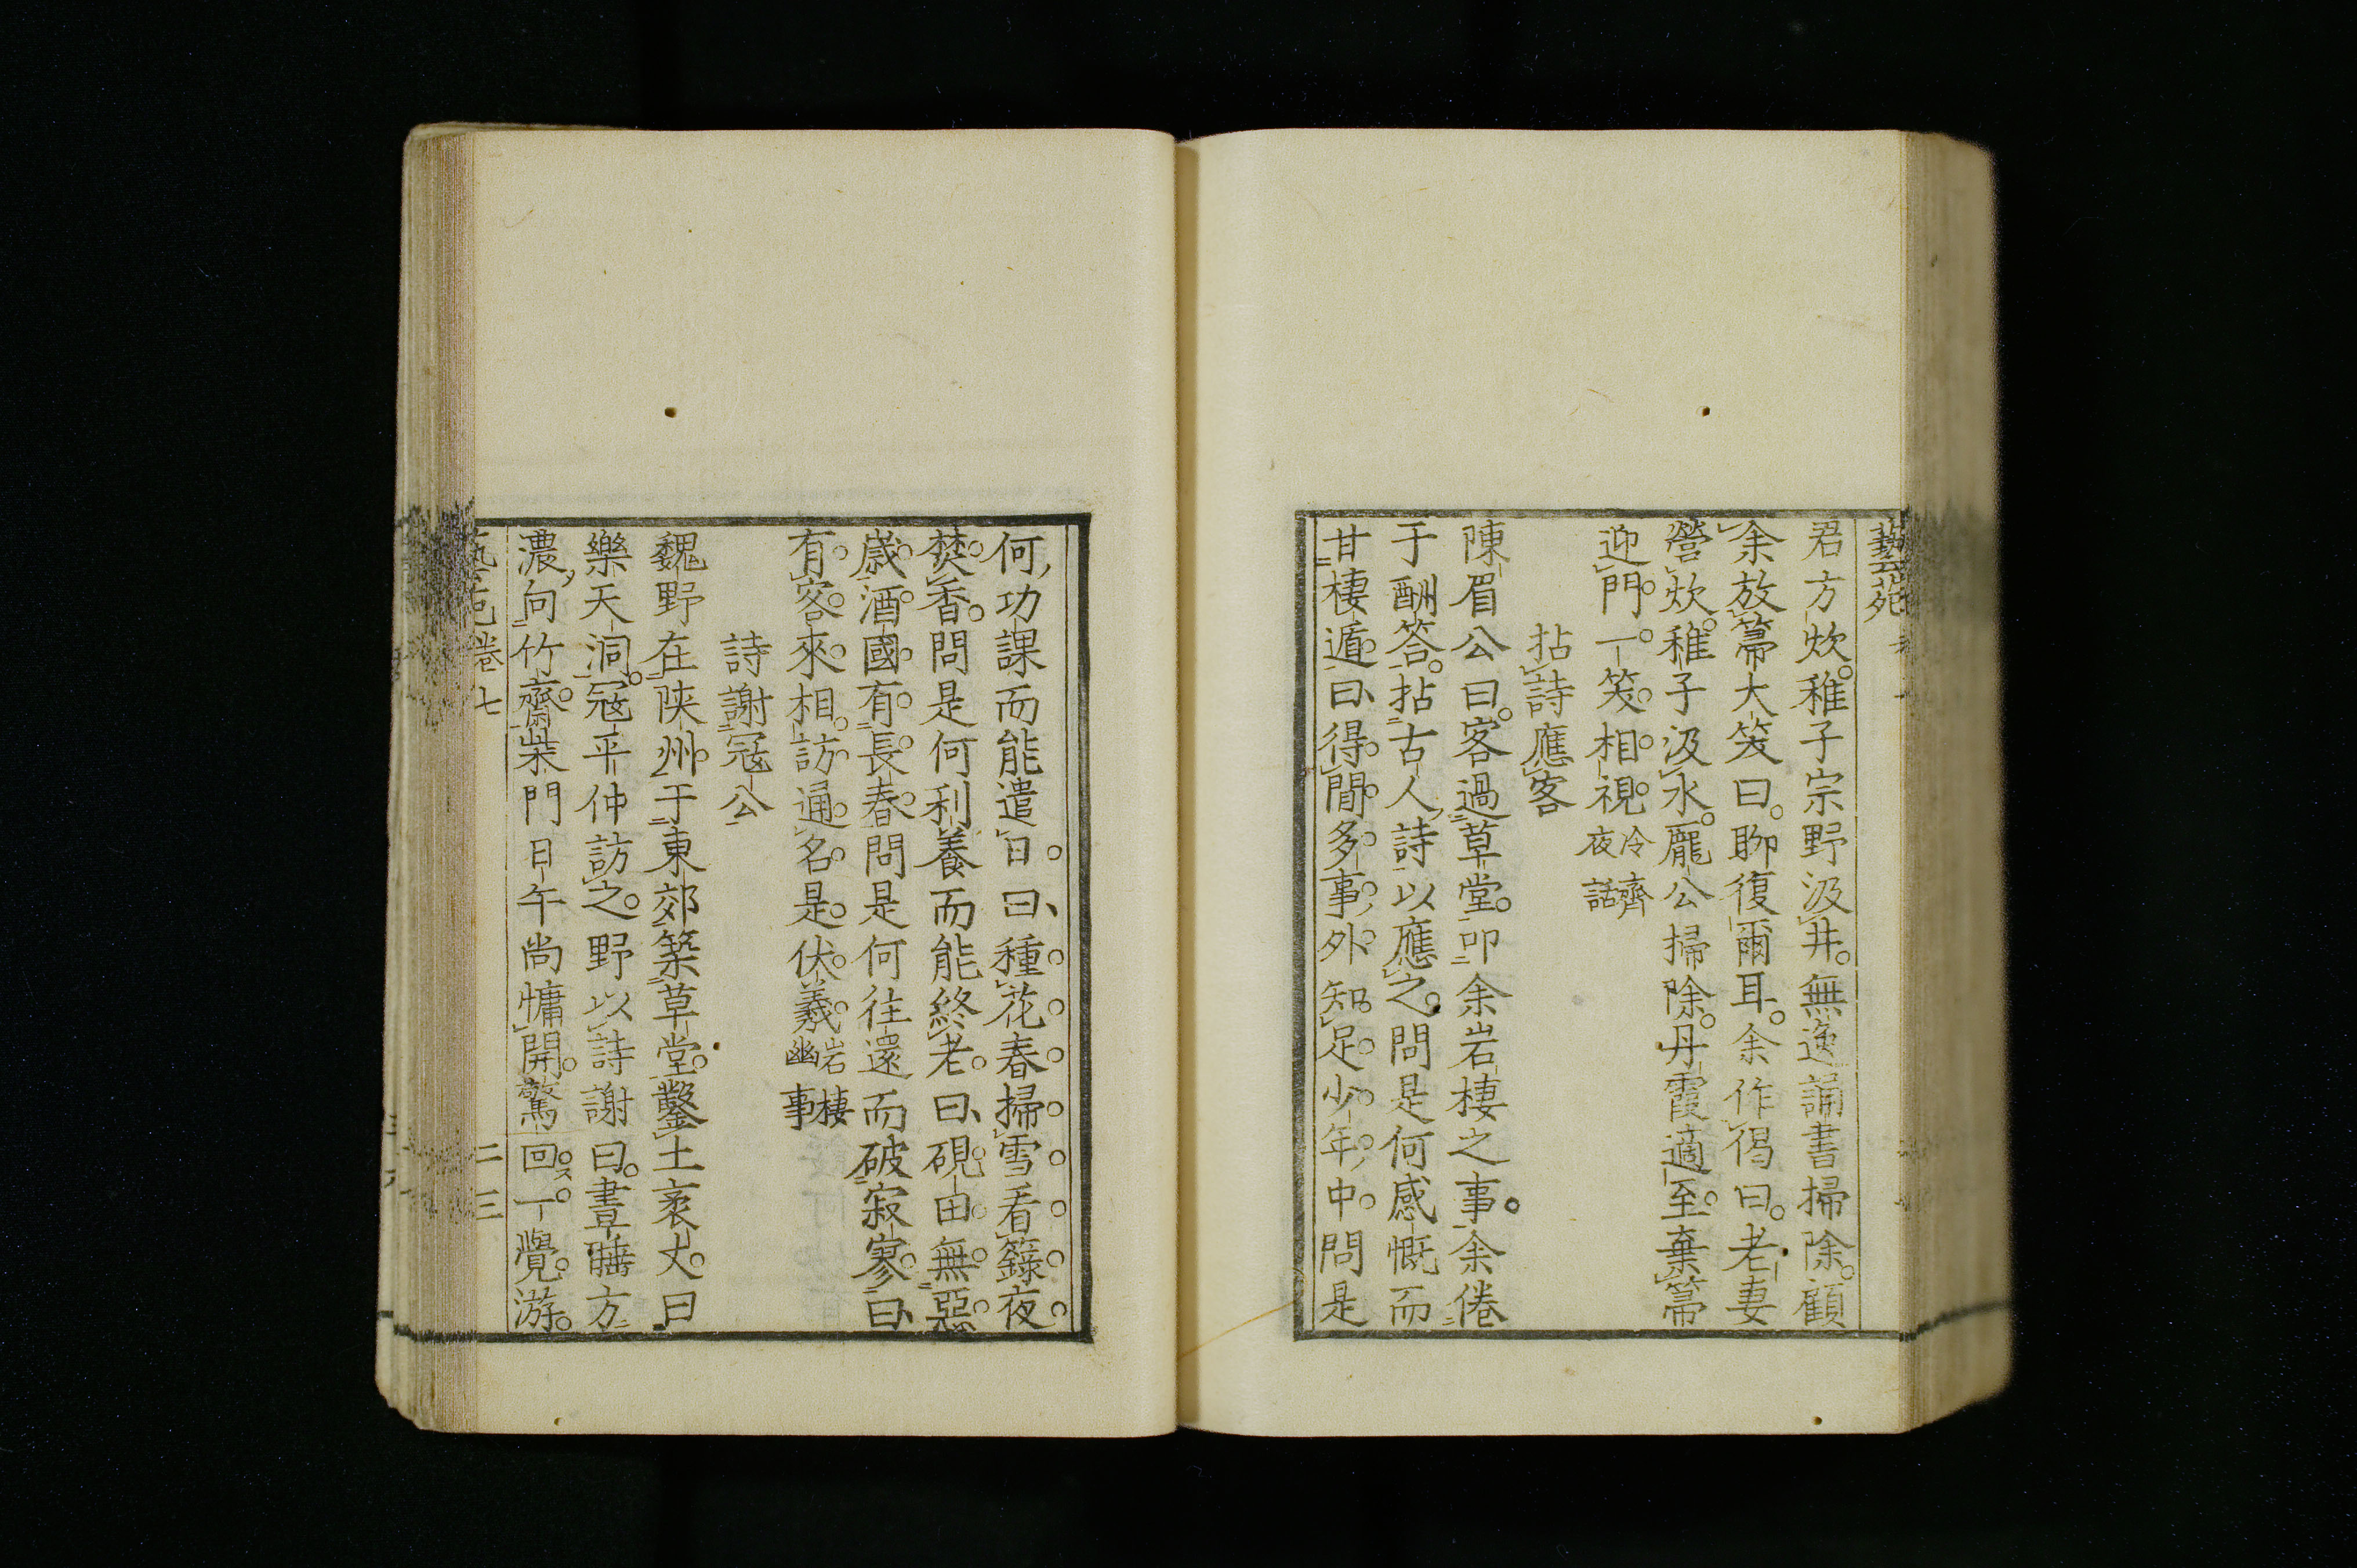 藝苑
君方炊稚子宗野汲井無逸誦書掃除顧
余放箒大笑曰聊復爾耳余作偈曰老妻
營炊稚子汲水龐公掃除丹霞適至棄箒
迎門一笑相視冷齋夜話
拈詩應客
陳眉公曰客過草堂叩余岩棲之事余倦
于酬答拈古人詩以應之問是何感慨而
甘棲遁曰得閒多事外知足少年中問是
何功課而能遣日曰種花春掃雪看籙夜
焚香問是何利養而能終老曰硯田無惡
歲酒國有長春問是何往還而破寂寥曰
有客來相訪通名是伏羲岩棲幽事
詩謝寇公
魏野在陝州于東郊築草堂鑿土袤丈曰
樂天洞寇平仲訪之野以詩謝曰晝睡方
濃向竹齋柴門日午尚慵開驚回一覺游
藝苑卷七
二三